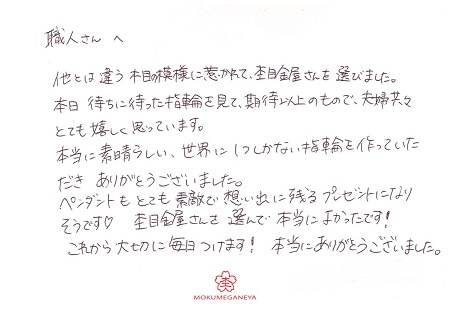 職人さん へ
他とは違う 木目の模様に惹かれて、杢目金屋さんを 選びました。
本日 待ちに待った指輪を見て、期待以上のもので、夫婦共々
とても嬉しく思っています。
本当に素晴らしい、世界に1つしかない指輪を作っていた
だき ありがとうございました。
ペンダントも とても 素敵で 想い出に残る プレゼントになり
そうです♡ 杢目金屋さんを 選んで 本当に よかったです!
これから 大切に 毎日 つけます! 本当に ありがとうございました。
杢
MOKUMEGANEYA